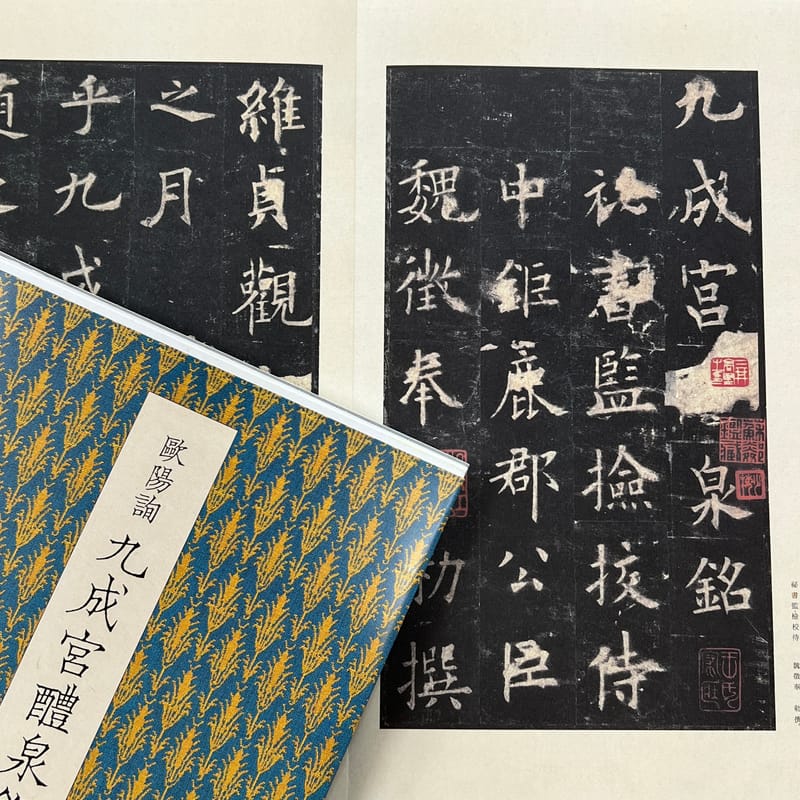 九成宮泉銘
祕書監撿挍侍
中鉅鹿郡公臣
魏徵奉撰
維貞觀
之月
乎九成
歐陽詢
九成宮醴泉
秘書監檢校侍
魏徵奉